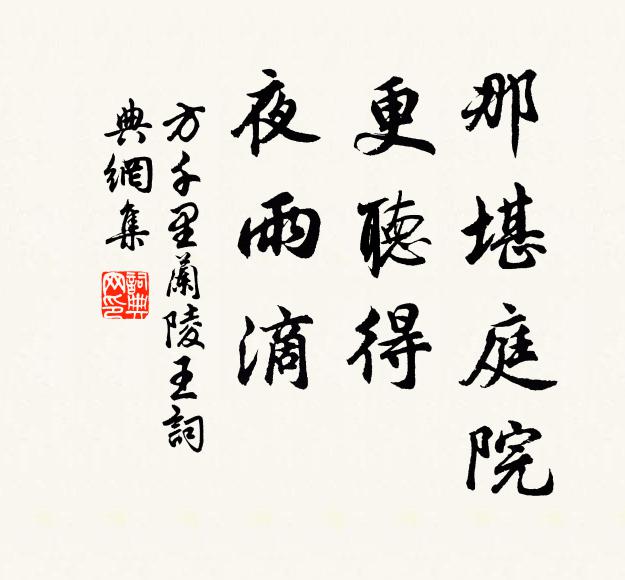 那堪庭院
更聽得
夜雨滴
方千里蘭陵王詞
典網集
詞典
网印